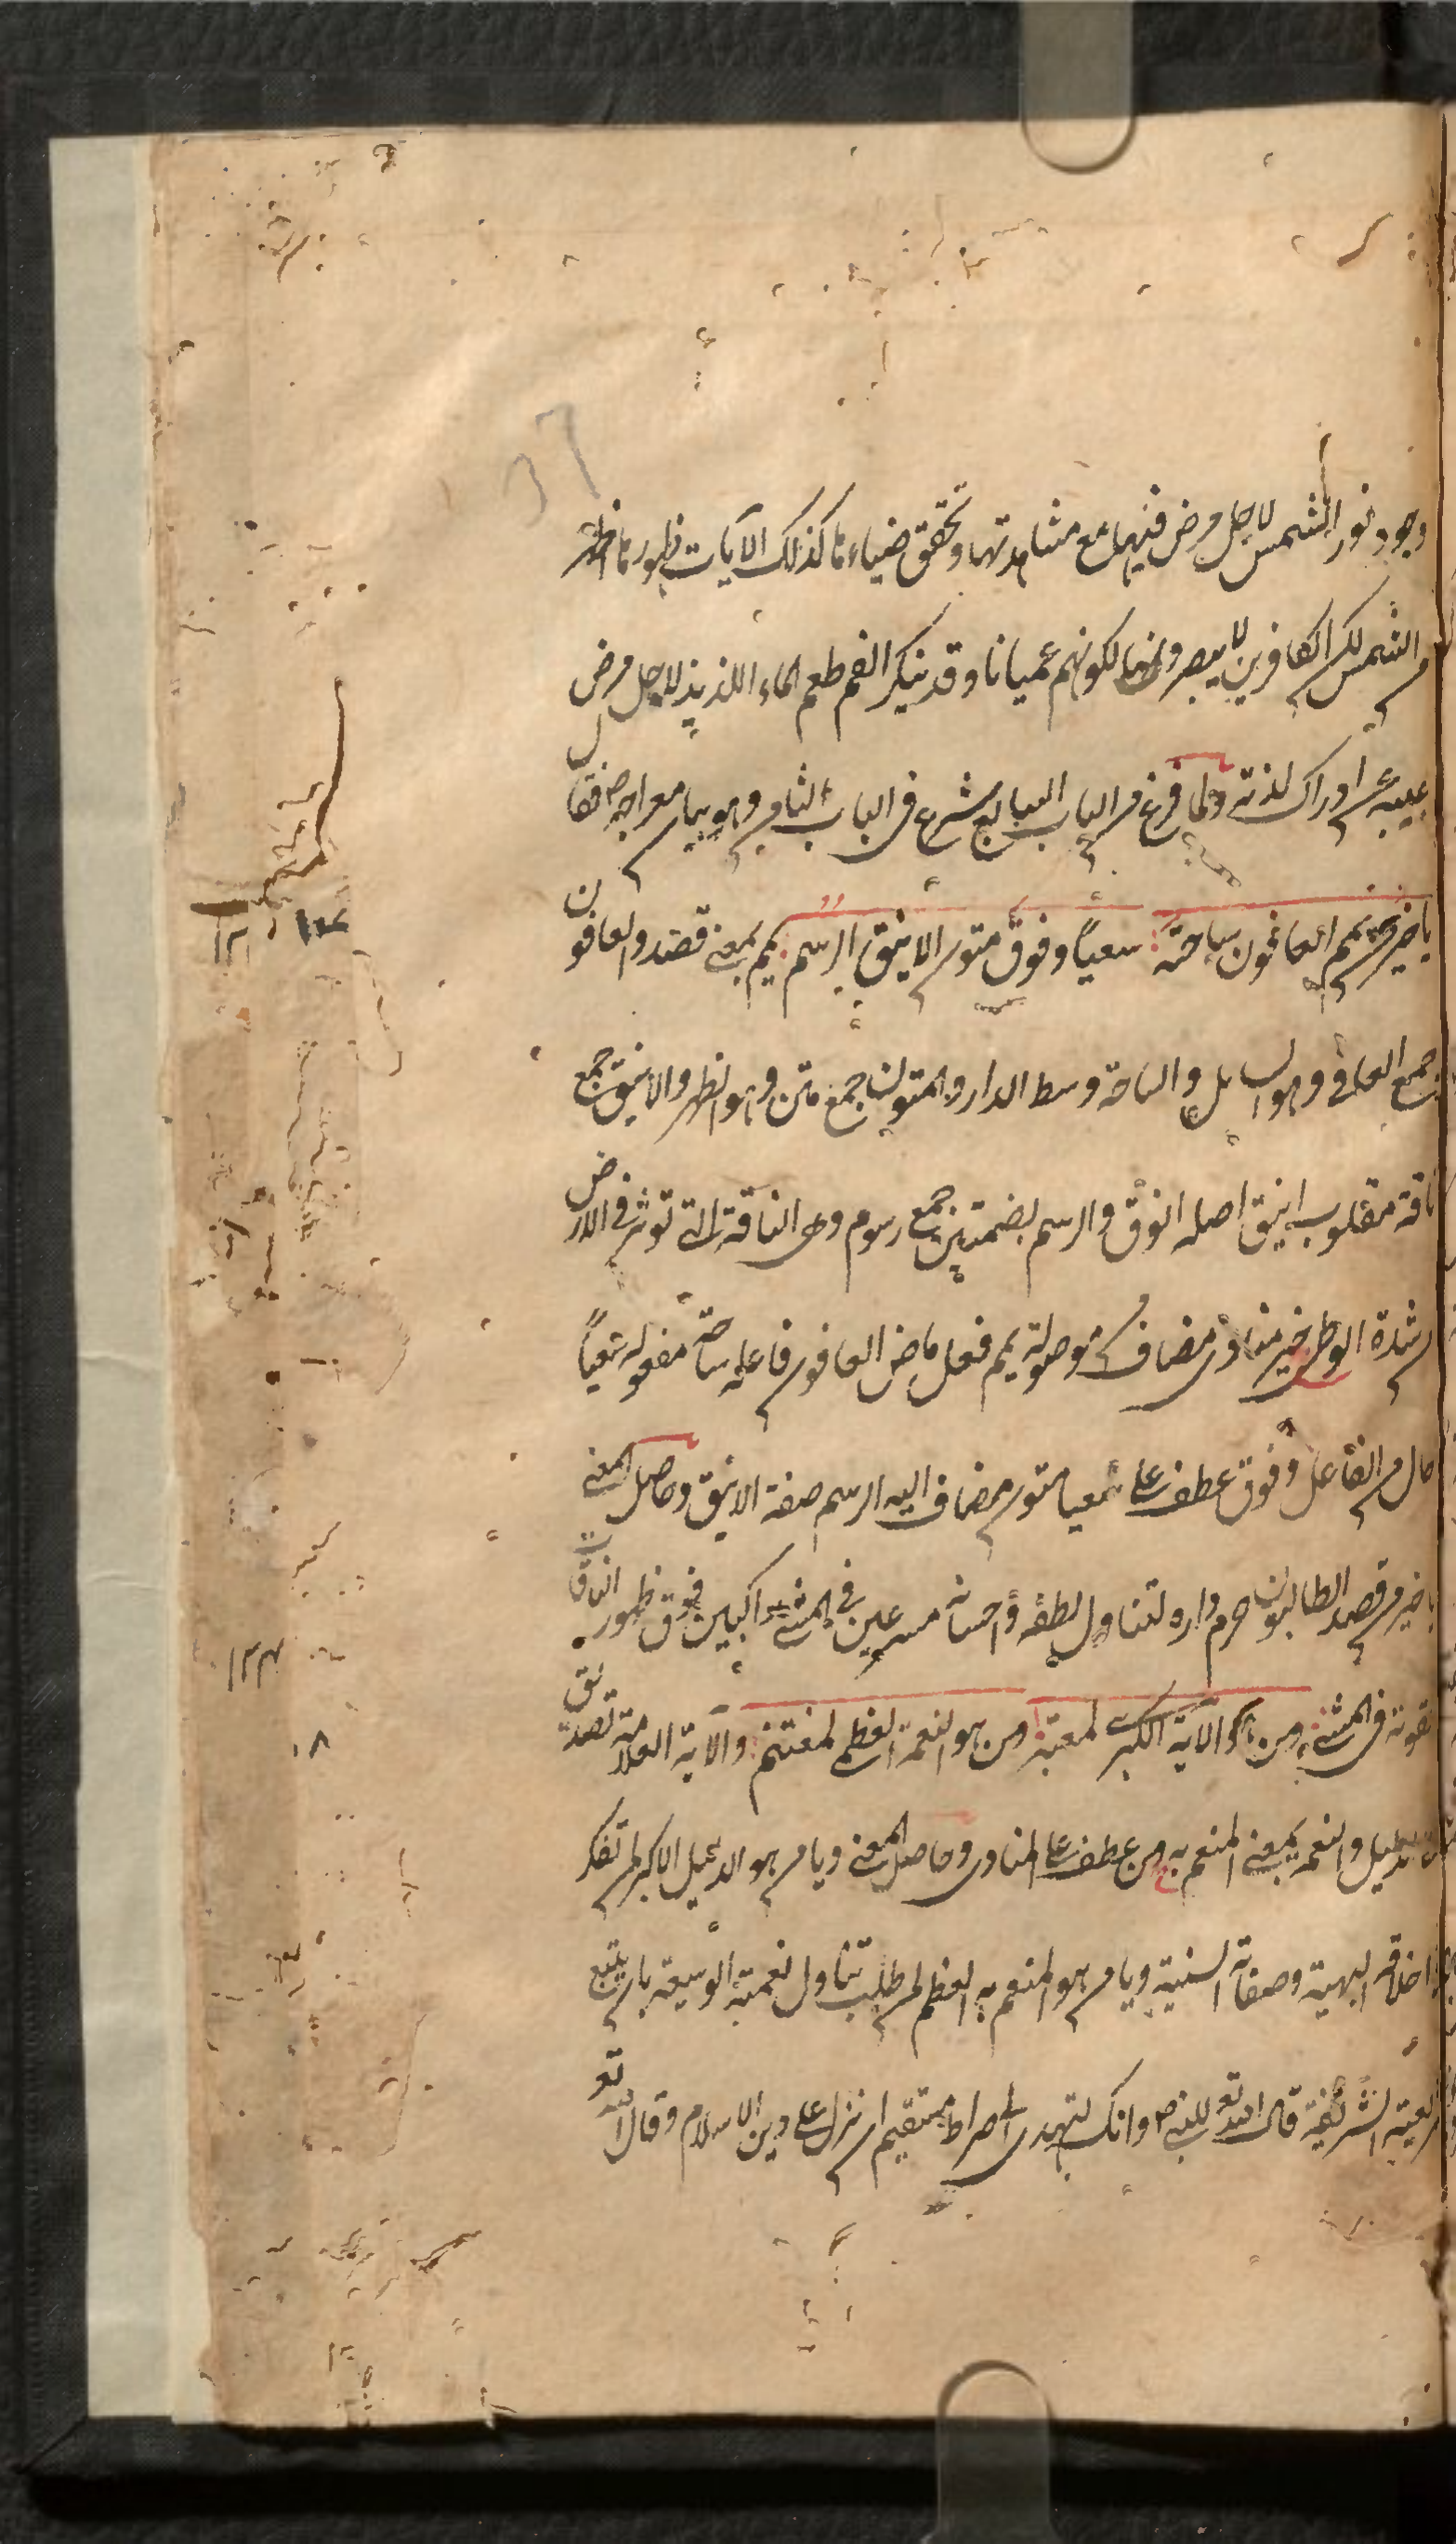 وجود نور الشمس لاجل مرض فيهما مع مشاهدتهما وتحقق ضياءها كذلك الآيات ظهورها اظهر
من الشمس لكن الكافرين لا يبصرونها لكونهم عميانا وقد ينكر الفم طعم الماء اللذيذ لاجل مرض
عن ادراك لذته ولما فرغ من الباب السابع شرع في الباب الثامن وهو بيان معراجه ص فقال
يا خير من يمم العافون ساحته سعيا وفوق متون الاينق الرسم يمم بمعنى قصد والعافون
جمع العافي وهو السايل والساحة وسط الدار والمتون جمع متن وهو الظهر والاينق جمع
ناقة مقلوب اينق اصله انوق والرسم بضمتين جمع رسوم وهي الناقة التي توثر في الارض
من شدة الوطي خير منادى مضاف من موصولة يمم فعل ماض العافون فاعله ساحته مفعوله سعيا
حال من الفاعل وفوق عطف على سعيا متون مضاف اليه الرسم صفة الاينق وحاصل المعنى
يا خير من قصد الطالبون حرم داره لتناول لطفه واحسانه مسرعين في المشي راكبين فوق ظهور الناقات
في المشي ومن هو الآية الكبرى لمعتبر ومن هو النعمة العظمى لمغتنم والآية العلامة
والنعمة بمعنى المنعم به ومن عطف على المنادى وحاصل المعنى ويا من هو الدليل الاكبر لمن تفكر
اخلاقه البهية وصفاته السنية ويا من هو المنعم به العظمى لمن طلب تناول نعمته الوسيعة بان يتبع
الشريفة قال الله تع للنبي ص وانك لتهدي الى صراط مستقيم اي نزل على دين الاسلام وقال الله تع
١٢١
١٢٢
١٨